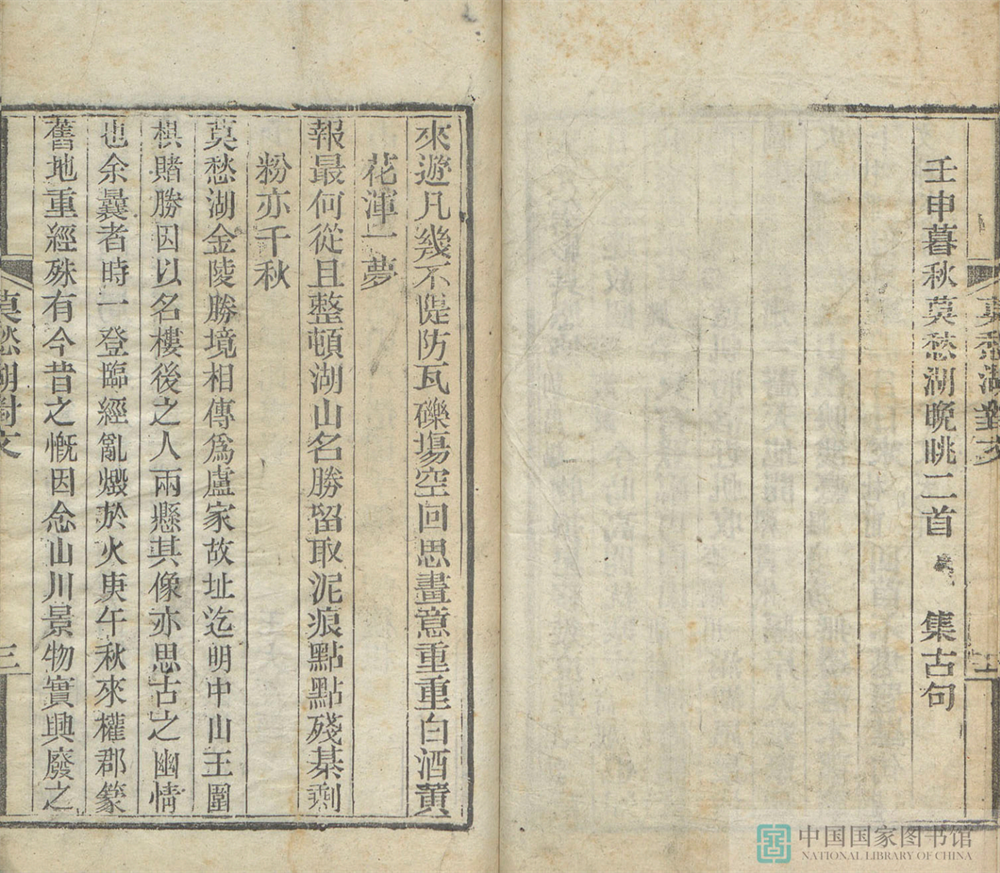 莫愁湖對文
壬申暮秋莫愁湖晚眺二首 集古句
來遊凡幾不隄防瓦礫塲空回思畫意重重白酒黄
花渾一夢
報最何從且整頓湖山名勝留取泥痕點點殘棊剩
粉亦千秋
莫愁湖金陵勝境相傳爲盧家故址迄明中山王圍
棋賭勝因以名樓後之人兩懸其像亦思古之幽情
也余曩者時一登臨經亂燬於火庚午秋來權郡篆
舊地重經殊有今昔之慨因念山川景物實興廢之
莫愁湖對文
三
中国国家图书馆
NATIONAL LIBRARY OF CHINA